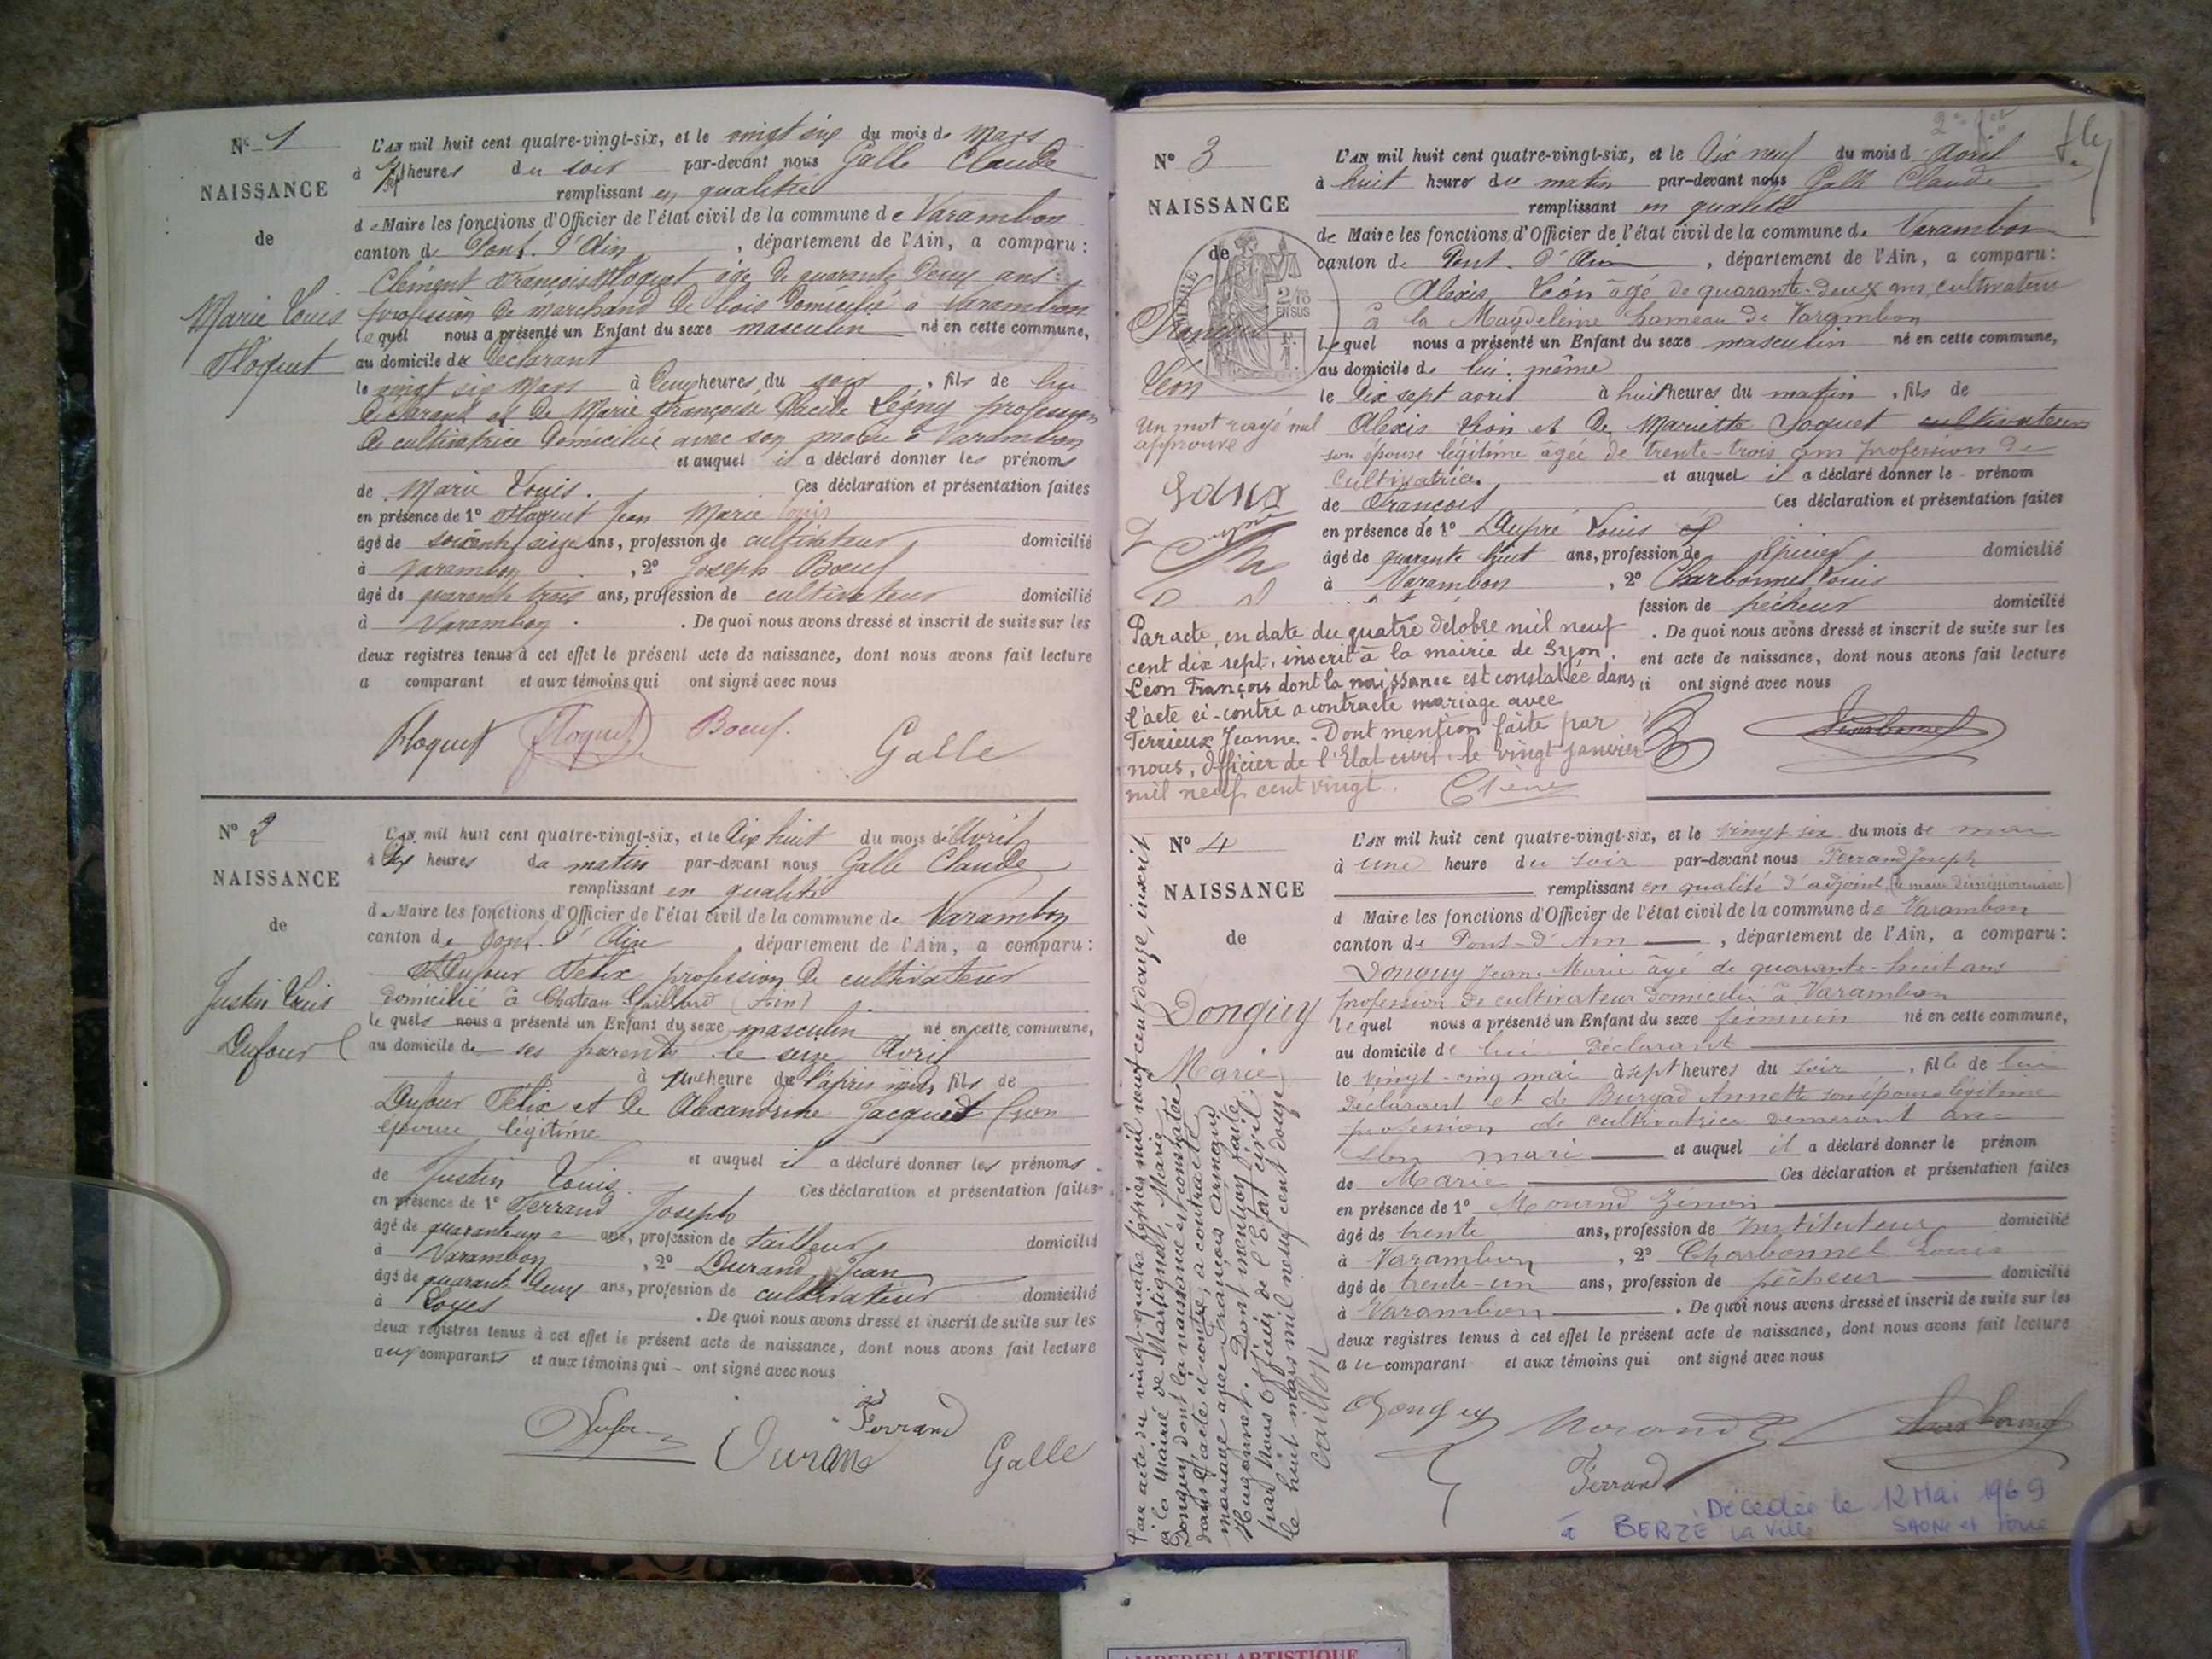 N° 1
NAISSANCE
de
Marie Louis
Floquet
L'AN mil huit cent quatre-vingt-six, et le vingt six du mois de Mars
à heures du soir par-devant nous Galle Claude
remplissant en qualité
de Maire les fonctions d'Officier de l'état civil de la commune de Varambon
canton de Pont. d'Ain, département de l'Ain, a comparu :
Clément François Floquet âgé de quarante deux ans
profession de marchand de bois domicilié à Varambon
lequel nous a présenté un Enfant du sexe masculin né en cette commune,
au domicile du déclarant
le vingt six Mars à deux heures du soir, fils de lui
déclarant et de Marie Françoise Légny profession
de cultivatrice domiciliée avec son mari à Varambon
et auquel il a déclaré donner les prénoms
de Marie Louis. Ces déclaration et présentation faites
en présence de 1° Floquet Jean Marie Louis
âgé de soixante seize ans, profession de cultivateur domicilié
à Varambon, 2° Joseph Boeuf
âgé de quarante trois ans, profession de cultivateur domicilié
à Varambon. De quoi nous avons dressé et inscrit de suite sur les
deux registres tenus à cet effet le présent acte de naissance, dont nous avons fait lecture
a comparant et aux témoins qui ont signé avec nous
Floquet Floquet Boeuf. Galle
N° 2
NAISSANCE
de
Justin Louis
Dufour
L'AN mil huit cent quatre-vingt-six, et le dix huit du mois d'Avril
à dix heures du matin par-devant nous Galle Claude
remplissant en qualité
de Maire les fonctions d'Officier de l'état civil de la commune de Varambon
canton de Pont. d'Ain, département de l'Ain, a comparu :
Dufour Félix profession de cultivateur
domicilié à Chateau Gaillard (Ain)
le quel nous a présenté un Enfant du sexe masculin né en cette commune,
au domicile de ses parents le seize Avril
à une heure de l'après midi, fils de
Dufour Félix et de Alexandrine Jacquet son
épouse légitime
et auquel il a déclaré donner les prénoms
de Justin Louis. Ces déclaration et présentation faites
en présence de 1° Ferrand Joseph
âgé de quarante un ans, profession de tailleur domicilié
à Varambon, 2° Durand Jean
âgé de quarante deux ans, profession de cultivateur domicilié
à Loyes. De quoi nous avons dressé et inscrit de suite sur les
deux registres tenus à cet effet le présent acte de naissance, dont nous avons fait lecture
aux comparants et aux témoins qui ont signé avec nous
Dufour Durand Ferrand Galle
N° 3
NAISSANCE
de
François
Léon
Un mot rayé nul
approuvé
TIMBRE
2/10
EN SUS
L'AN mil huit cent quatre-vingt-six, et le dix neuf du mois d'Avril
à huit heures du matin par-devant nous Galle Claude
remplissant en qualité
de Maire les fonctions d'Officier de l'état civil de la commune de Varambon
canton de Pont. d'Ain, département de l'Ain, a comparu :
Alexis Léon âgé de quarante-deux ans cultivateur
à la Magdeleine hameau de Varambon
lequel nous a présenté un Enfant du sexe masculin né en cette commune,
au domicile de lui. même
le dix sept avril à huit heures du matin, fils de
Alexis Léon et de Mariette Joquet cultivateur
son épouse légitime âgée de trente-trois ans profession de
cultivatrice. et auquel il a déclaré donner le prénom
de François Ces déclaration et présentation faites
en présence de 1° Dupré Louis
âgé de quarante huit ans, profession de épicier domicilié
à Varambon, 2° Charbonnel Louis
fession de pêcheur domicilié
. De quoi nous avons dressé et inscrit de suite sur les
ent acte de naissance, dont nous avons fait lecture
ui ont signé avec nous
Par acte en date du quatre octobre mil neuf
cent dix sept, inscrit à la mairie de Lyon.
Léon François dont la naissance est constatée dans
l'acte ci-contre a contracté mariage avec
Terrieux Jeanne. Dont mention faite par
nous, Officier de l'Etat civil, le vingt Janvier
mil neuf cent vingt.
Charbonnel
N° 4
NAISSANCE
de
Donguy
Marie
L'AN mil huit cent quatre-vingt-six, et le vingt six du mois de mai
à une heure du soir par-devant nous Ferrand Joseph
remplissant en qualité d'adjoint, (le maire démissionnaire)
d Maire les fonctions d'Officier de l'état civil de la commune de Varambon
canton de Pont-d'Ain, département de l'Ain, a comparu :
Donguy Jean-Marie âgé de quarante-huit ans
profession de cultivateur domicilié à Varambon
lequel nous a présenté un Enfant du sexe féminin né en cette commune,
au domicile de lui déclarant
le vingt-cinq mai à sept heures du soir, fille de lui
déclarant et de Burgad Annette son épouse légitime
profession de cultivatrice demeurant avec
son mari et auquel il a déclaré donner le prénom
de Marie Ces déclaration et présentation faites
en présence de 1° Morand Zénon
âgé de trente ans, profession de Instituteur domicilié
à Varambon, 2° Charbonnel Louis
âgé de trente-un ans, profession de pêcheur domicilié
à Varambon. De quoi nous avons dressé et inscrit de suite sur les
deux registres tenus à cet effet le présent acte de naissance, dont nous avons fait lecture
au comparant et aux témoins qui ont signé avec nous
Donguy Morand Charbonnel
Ferrand
Par acte du vingt-quatre février mil neuf cent douze, inscrit
à la Mairie de Martignat, Marie
Donguy dont la naissance est constatée
dans l'acte ci-contre, a contracté
mariage avec François
Hugonnet. Dont mention faite
par Nous Officier de l'Etat civil,
le huit mars mil neuf cent douze
Caillon
Décédée le 12 Mai 1969
à BERZE la Ville SAONE et Loire
AMBERIEU ARTISTIQUE